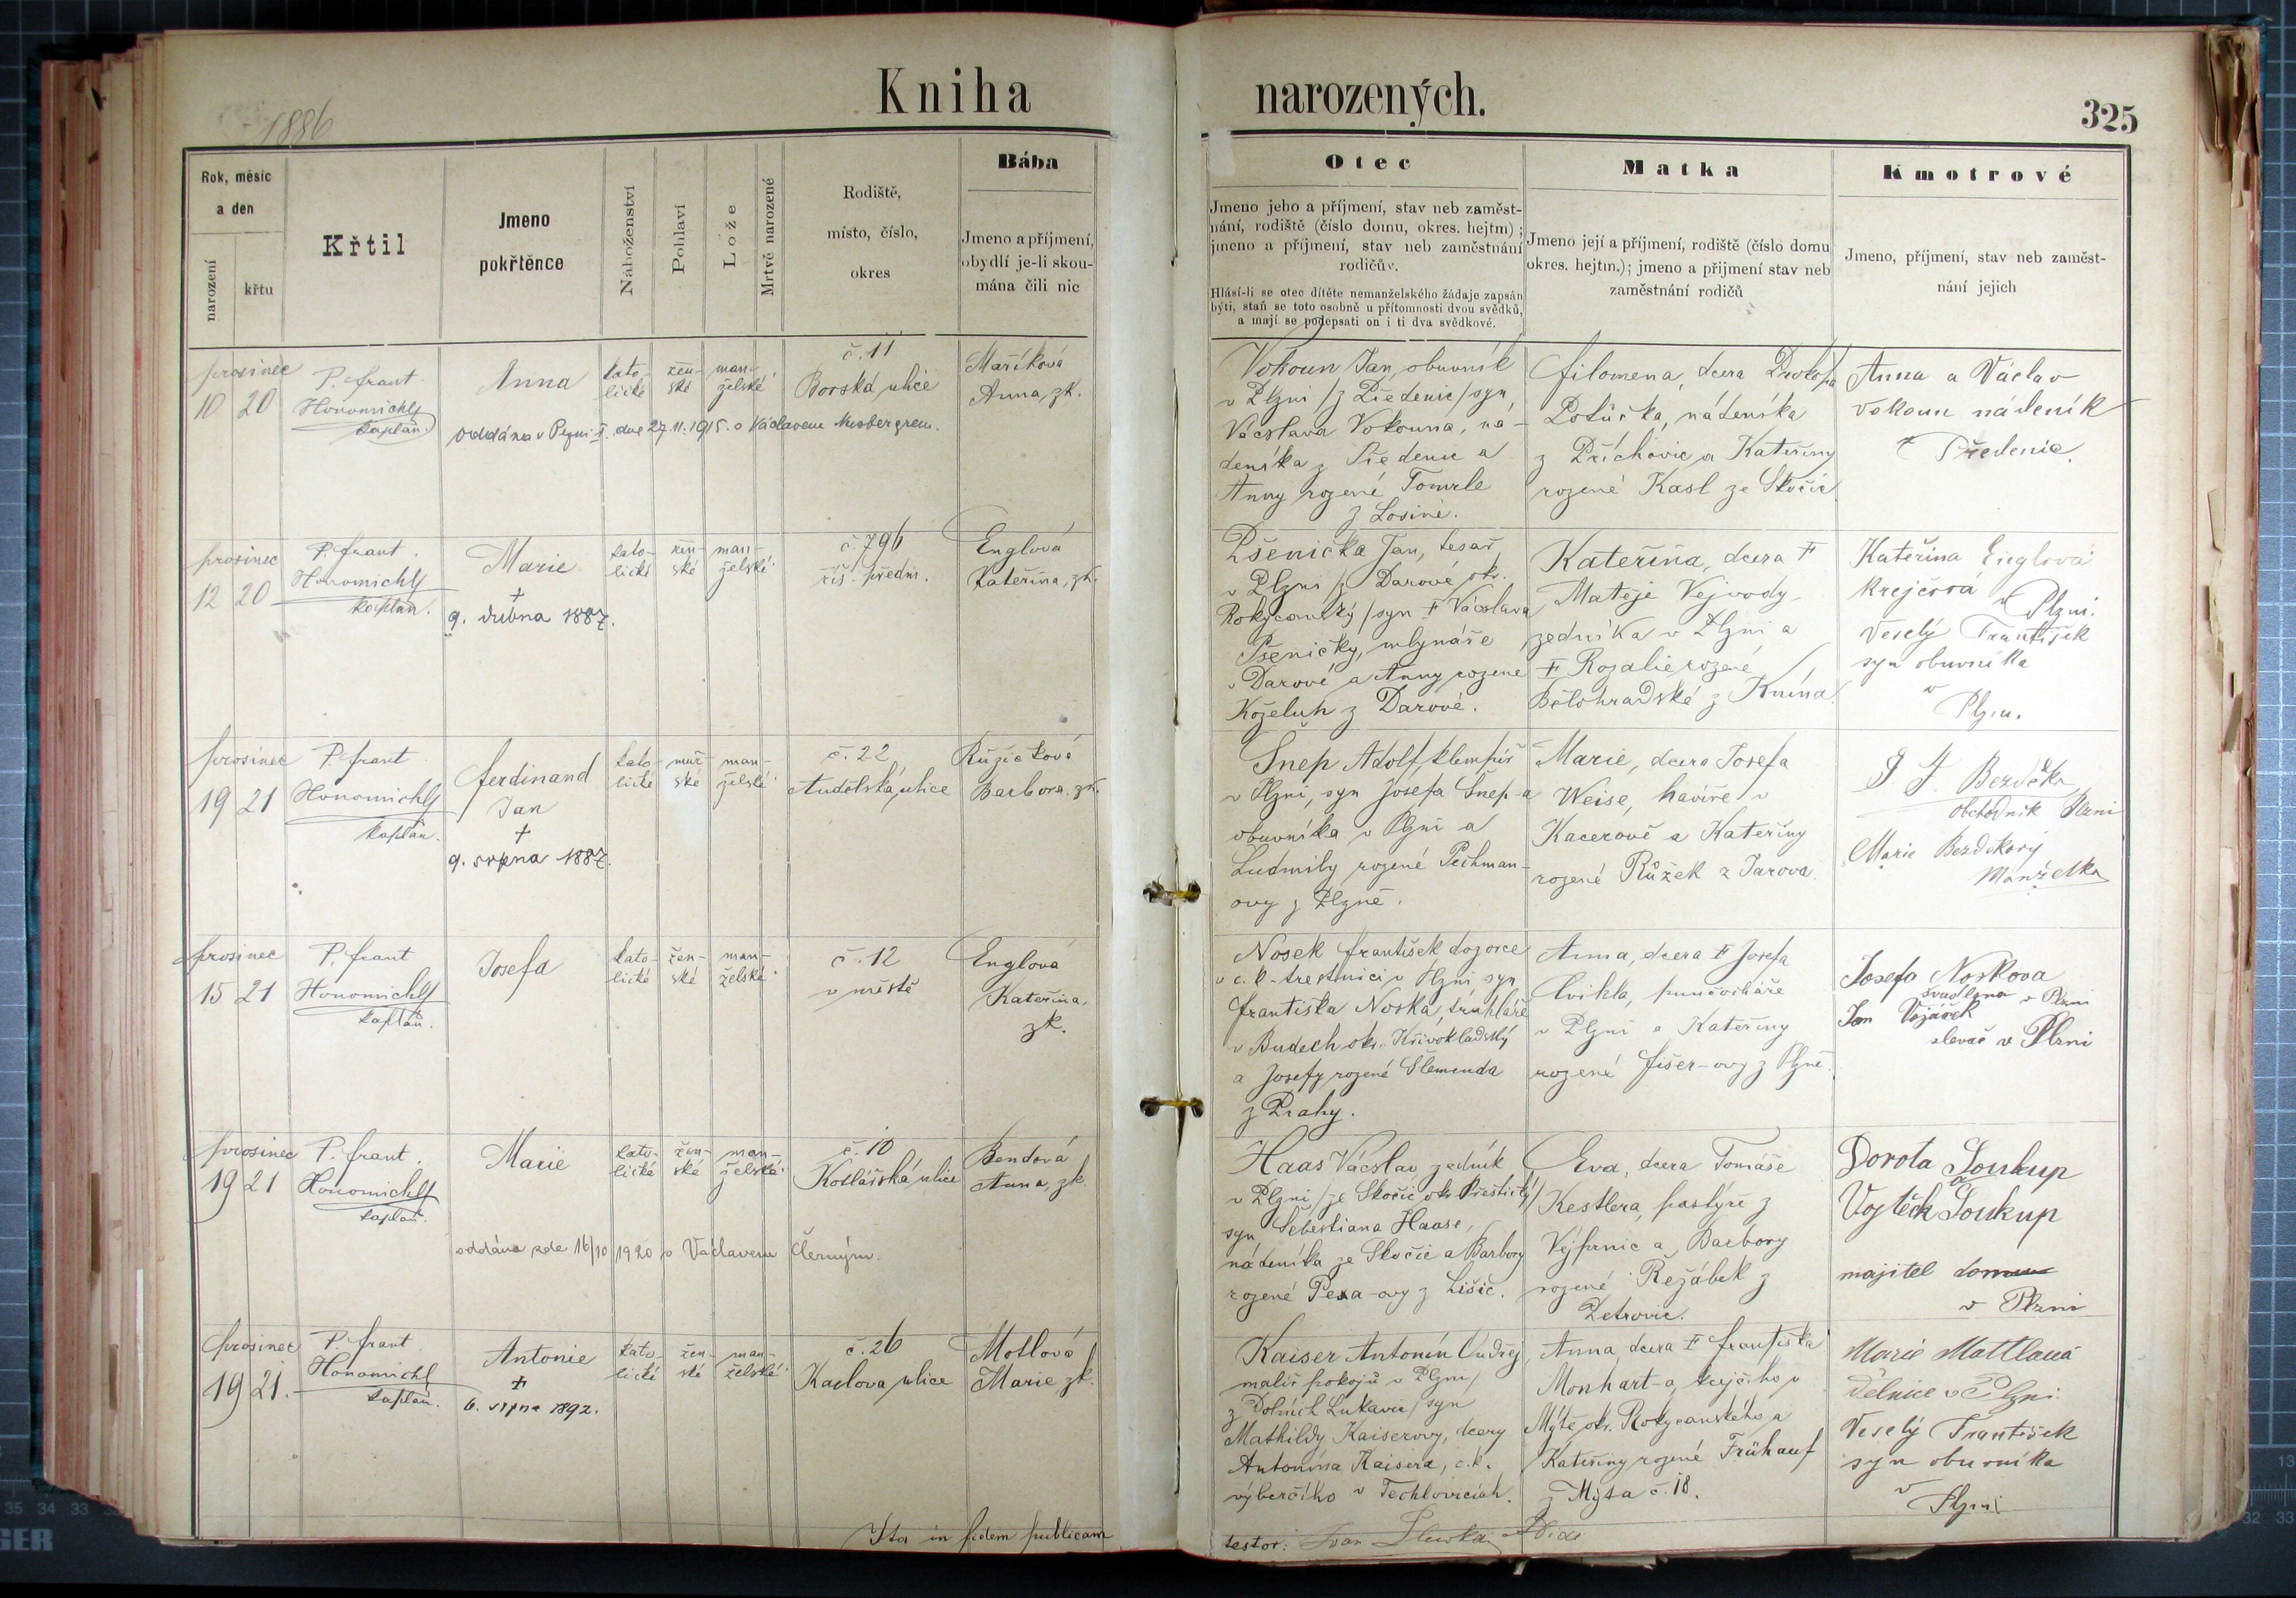 Kniha narozených.
1886
325
Rok, měsíc a den
narození
křtu
Křtil
Jmeno pokřtěnce
Náboženství
Pohlaví
Lože
Mrtvě narozené
Rodiště,
místo, číslo,
okres
Bába
Jmeno a příjmení,
obydlí je-li skou-
mána čili nic
Otec
Jmeno jeho a příjmení, stav neb zaměst-
nání, rodiště (číslo domu, okres. hejtm) ;
jmeno a příjmení, stav neb zaměstnání
rodičův.
Hlásí-li se otec dítěte nemanželského žádaje zapsán
býti, staň se toto osobně u přítomnosti dvou svědků,
a mají se podepsati on i ti dva svědkové.
Matka
Jmeno její a příjmení, rodiště (číslo domu
okres. hejtm.); jmeno a příjmení stav neb
zaměstnání rodičů
Kmotrové
Jmeno, příjmení, stav neb zaměst-
nání jejich
prosinec
10 20
P. frant.
Honomichl
kaplan.
Anna
kato-
lické
žen-
ské
man-
želské
č. 11
Borská ulice
Maříková
Anna, zk.
oddána v Plzni I. dne 27.11.1915. s Václavem
Vokoun Jan, obuvník
v Plzni /z Předenic/ syn
Václava Vokouna, ná-
deníka z Předenic a
Anny rozené Tomrle
z Losiné.
filomena, dcera Prokopa
Potůčka, nádeníka
z Příchovic a Kateřiny
rozené Kasl ze Skočic
Anna a Václav
Vokoun nádeník
z Předenic.
prosinec
12 20
P. frant.
Honomichl
kaplan.
Marie
†
9. dubna 1887.
kato-
lické
žen-
ské
man-
želské
č. 796
říš. předm.
Englová
Kateřina, zk.
Pšenička Jan, tesař
v Plzni /z Darové okr.
Rokycanský/ syn † Václava
Pšeničky, mlynáře
v Darové a Anny rozené
Koželuh z Darové.
Kateřina, dcera †
Matěje Vejvody
zedníka v Plzni a
† Rozalie rozené
Bělohradské z Knína
Kateřina Englová
krejčová v Plzni.
Veselý František
syn obuvníka
v
Plzni.
prosinec
19 21
P. frant
Honomichl
kaplan.
ferdinand
Jan
†
9. srpna 1887.
kato-
lické
muž-
ské
man-
želské
č. 22
Rudolská ulice
Růžičková
Barbora, zk.
Šnep Adolf, klempíř
v Plzni, syn Josefa Šnep-a
obuvníka v Plzni a
Ludmily rozené Pechman-
ovy z Plzně.
Marie, dcera Josefa
Weise, havíře v
Kacerově a Kateřiny
rozené Růžek z Jarova
J. J. Bezděka
obchodník Plzni
Marie
manželka
prosinec
15 21
P. frant
Honomichl
kaplan.
Josefa
kato-
lické
žen-
ské
man-
želské
č. 12
v městě
Englová
Kateřina,
zk.
Nosek františek dozorce
v c. k. trestnici v Plzni, syn
františka Noska, truhláře
v Budech okr. Křivokladský
a Josefy rozené Slemenda
z Prahy.
Anna, dcera † Josefa
Cvikla, punčocháře
v Plzni a Kateřiny
rozené fišer-ovy z Plzně.
Josefa Noskova
švadlena v Plzni
Jan Vojáček
slevač v Plzni
prosinec
19 21
P. frant.
Honomichl
kaplan.
Marie
kato-
lické
žen-
ské
man-
želské
č. 10
Kollářská ulice
Bendová
Anna, zk.
oddána zde 16/10 1920 s Václavem Černým.
Haas Václav, zedník
v Plzni /ze Skočic okr. Přeštický/
syn Šebestiana Haase,
nádeníka ze Skočic a Barbory
rozené Pexa-ovy z Lišic.
Eva, dcera Tomáše
Kestlera, pastýře z
Vejprnic a Barbory
rozené Režábek z
Petrovic.
Dorota Soukup
a
Vojtěch Soukup
majitel domu
v Plzni
prosinec
19 21.
P. frant
Honomichl
kaplan.
Antonie
†
6. srpna 1892.
kato-
lické
žen-
ské
man-
želské
č. 26
Karlova ulice
Motlová
Marie, zk.
Kaiser Antonín Ondřej
malíř pokojů v Plzni/
z Dolních Lukavic/ syn
Mathildy Kaiserovy, dcery
Antonína Kaisera, c. k.
výberčího v Techlovicích.
Anna, dcera † františka
Monhart-a, krejčího v
Mýtě okr. Rokycanského a
Kateřiny rozené Frühauf
z Mýta č. 18.
Marie Mottlova
dělnice v Plzni.
Veselý František
syn obuvníka
v
Plzni
Ita in fidem publicam
testor: